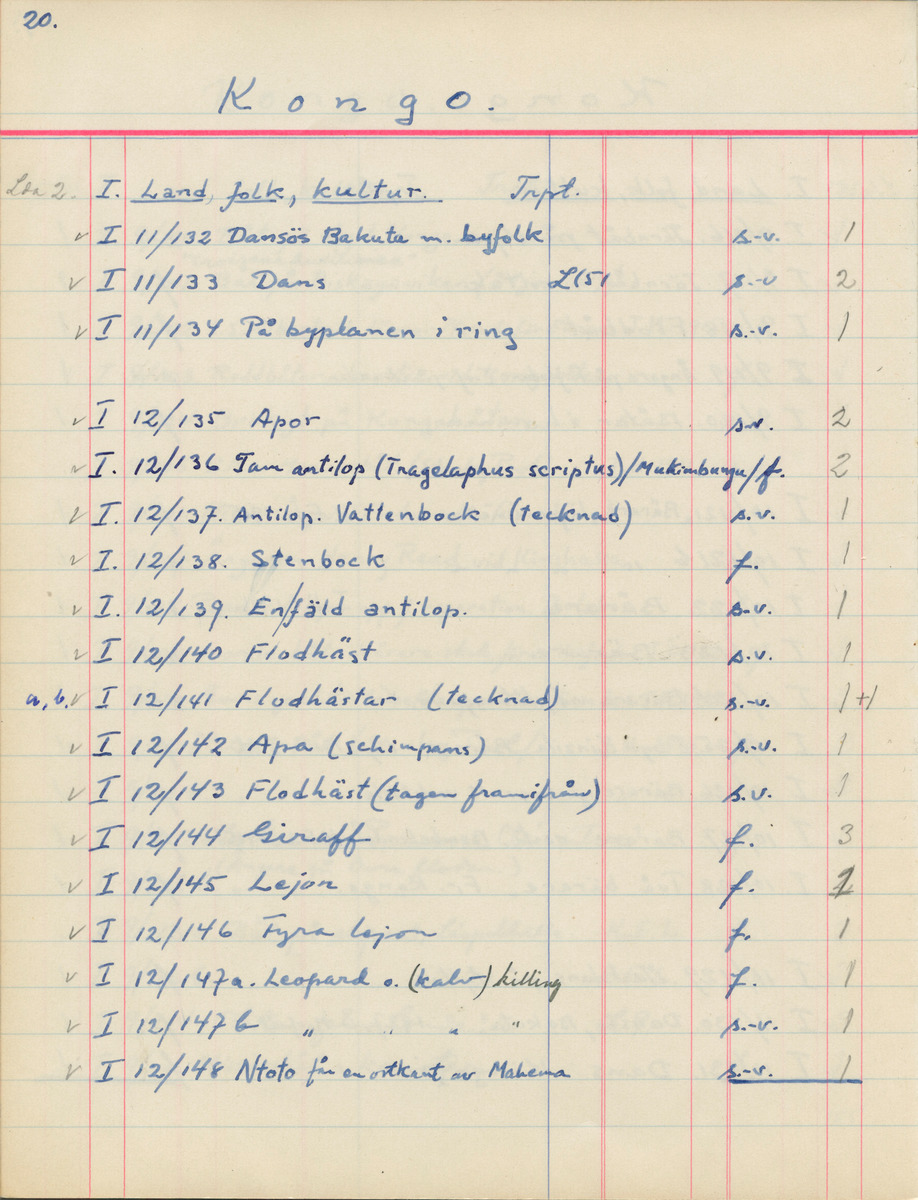 20.
Kongo.
Lda 2. I. Land, folk, kultur. Trpt.
✓ I 11/132 Dansös Bakuta m. byfolk s.-v. 1
✓ I 11/133 Dans L(51 s.-v 2
✓ I 11/134 På byplanen i ring s.-v. 1
✓ I 12/135 Apor s.v. 2
✓ I. 12/136 Tam antilop (Tragelaphus scriptus)/Mukimbungu/f. 2
✓ I. 12/137. Antilop. Vattenbock (tecknad) s.v. 1
✓ I. 12/138. Stenbock f. 1
✓ I. 12/139. En/fäld antilop. s.-v. 1
✓ I 12/140 Flodhäst s.v. 1
a, b. ✓ I 12/141 Flodhästar (tecknad) s.-v. 1+1
✓ I 12/142 Apa (schimpans) s.-v. 1
✓ I 12/143 Flodhäst (tagen framifrån) s.v. 1
✓ I 12/144 Giraff f. 3
✓ I 12/145 Lejon f. 1
✓ I 12/146 Fyra lejon f. 1
✓ I 12/147a. Leopard o. (kalv) killing f. 1
✓ I 12/147b " " " " s.-v. 1
✓ I 12/148 Ntoto får en ortkant av Mahema s.-v. 1